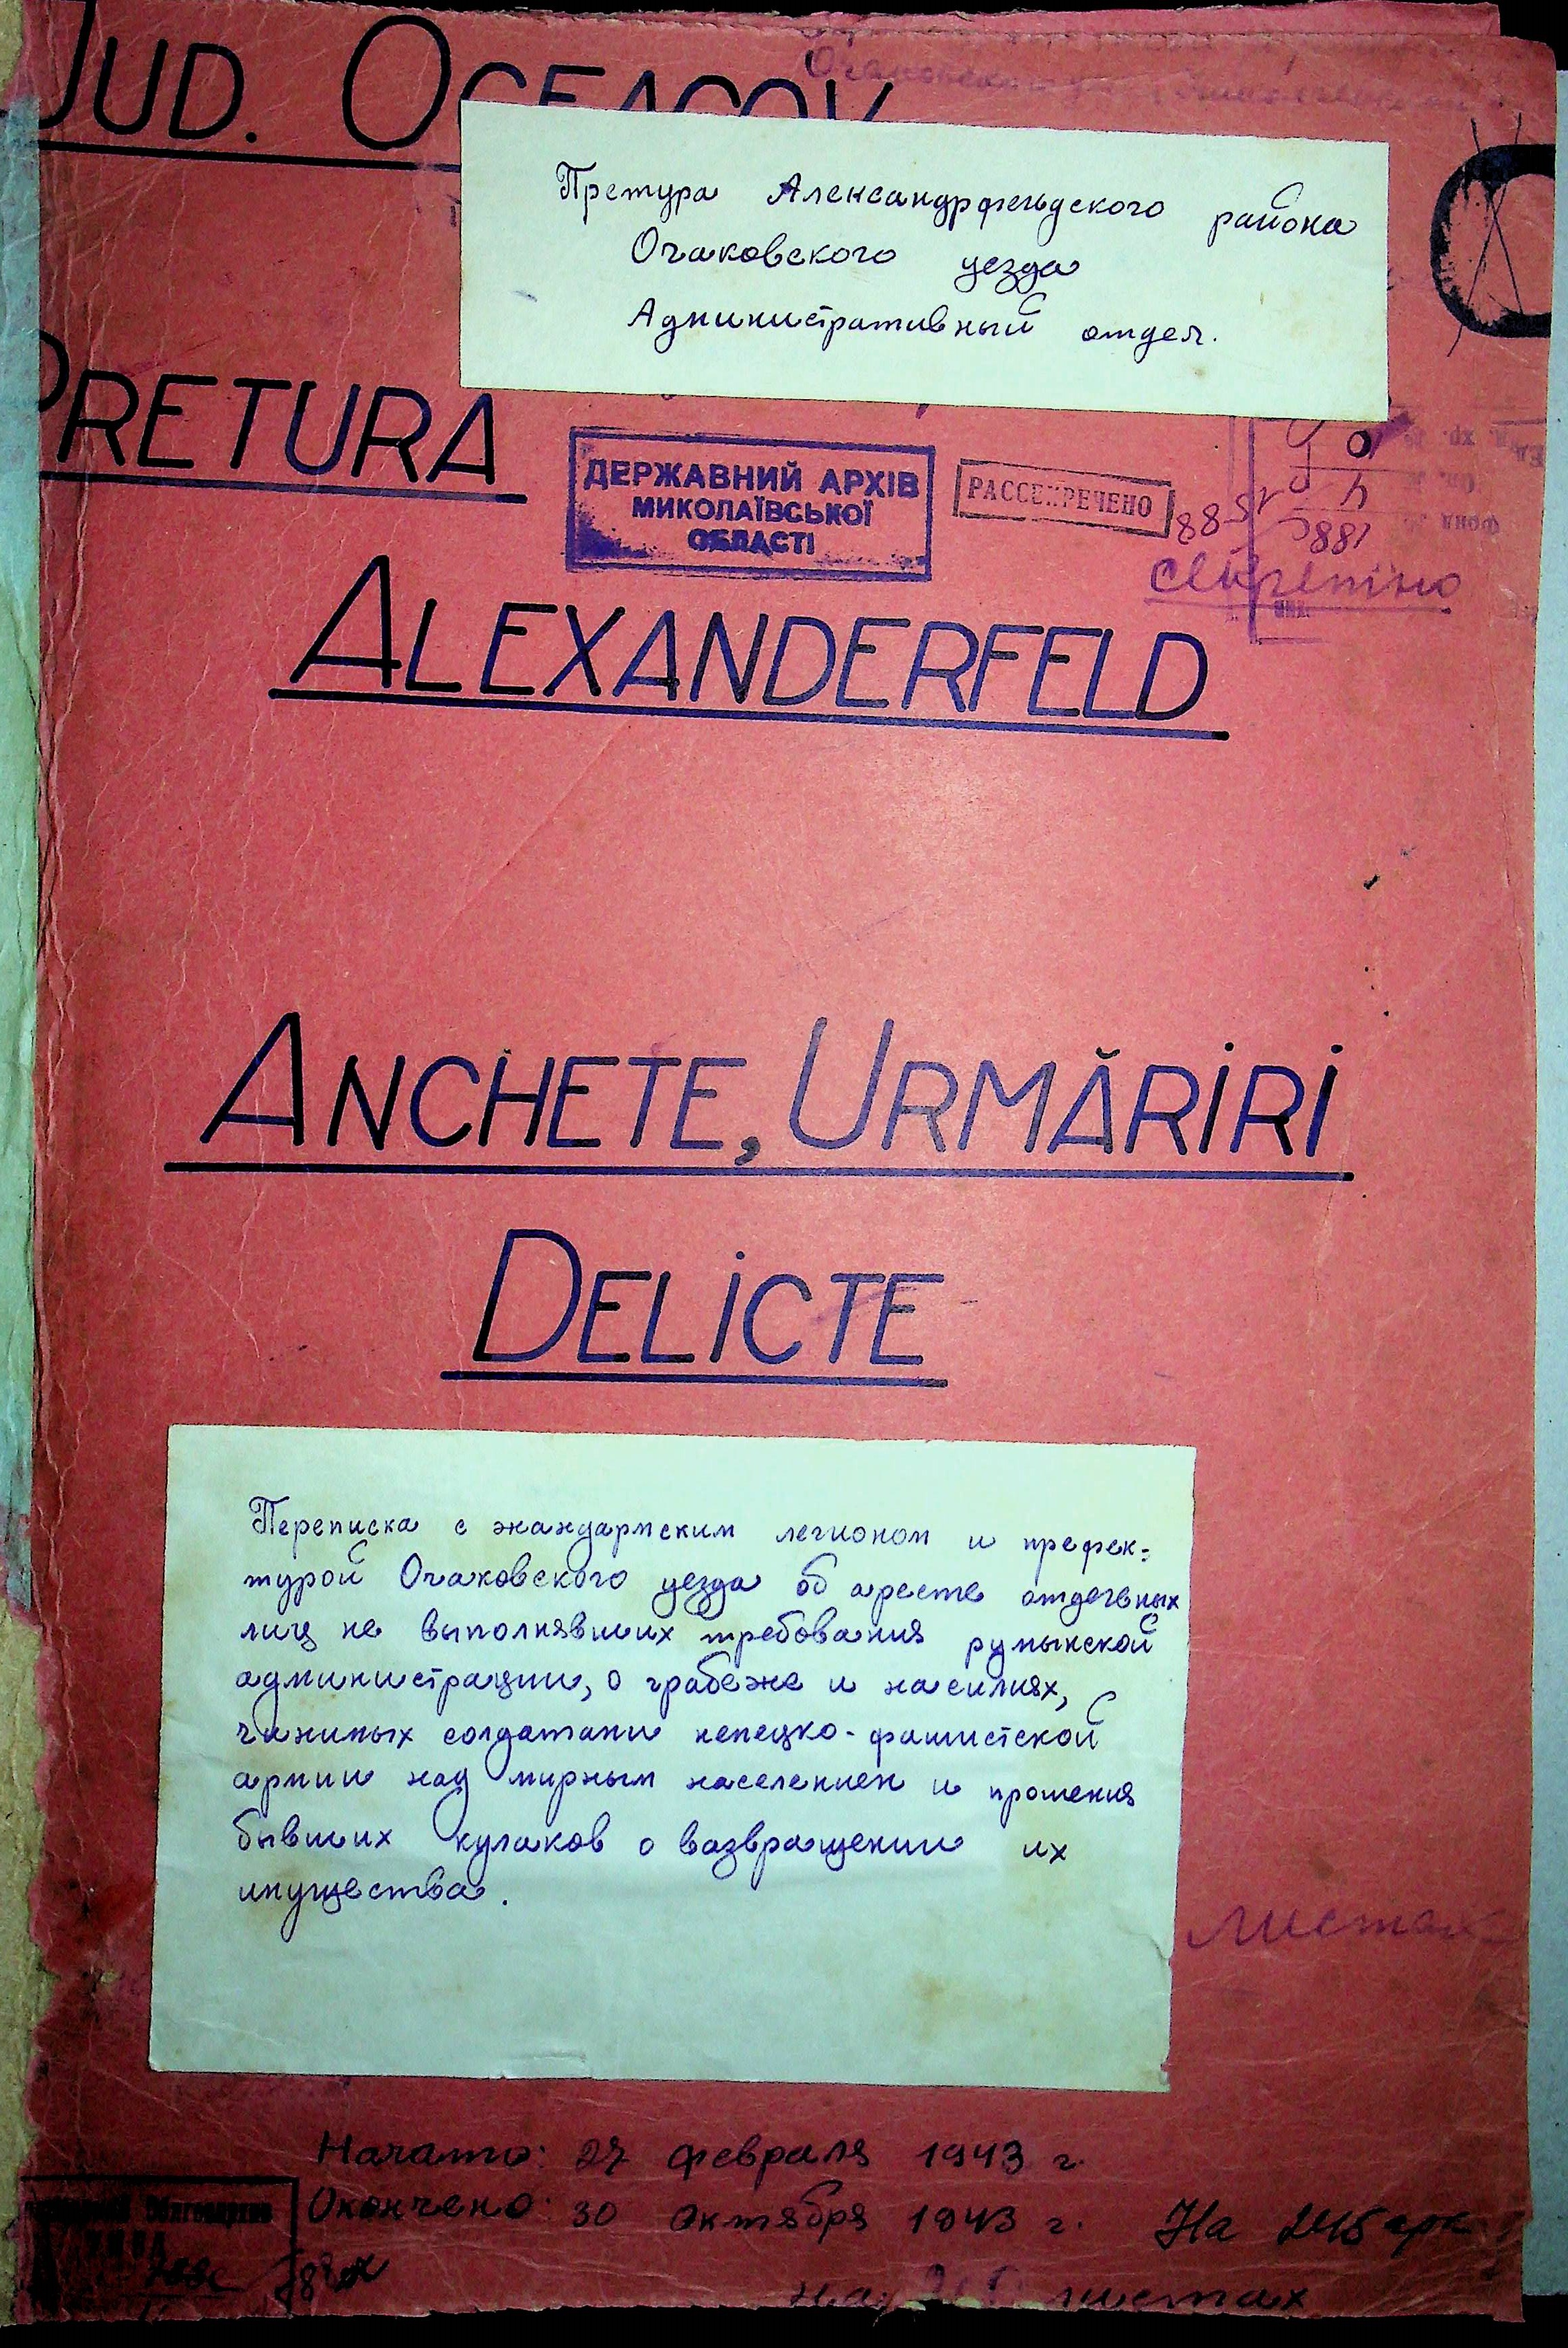 JUD. OCEACOV
Претура Александрфельдского района
Очаковского уезда
Административный отдел.
PRETURA
ДЕРЖАВНИЙ АРХІВ
МИКОЛАЇВСЬКОЇ
ОБЛАСТІ
РАССЕКРЕЧЕНО
ALEXANDERFELD
ANCHETE, URMĂRIRI
DELICTE
Переписка с жандармским легионом и префек-
турой Очаковского уезда об аресте отдельных
лиц не выполнявших требования румынской
администрации, о грабеже и насилиях,
чинимых солдатами немецко-фашистской
армии над мирным населением и прошения
бывших кулаков о возвращении их
имущества.
листах
Начато: 27 февраля 1943 г.
Окончено: 30 октября 1943 г. На
листах